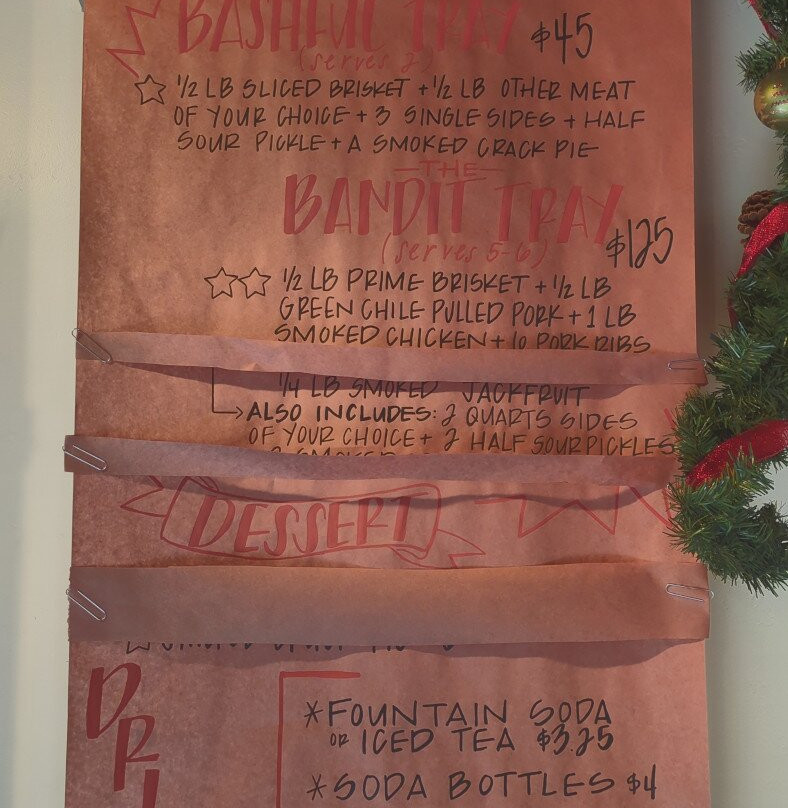 BASHFUL TRAY $45
(serves 2)
1/2 LB SLICED BRISKET + 1/2 LB OTHER MEAT
OF YOUR CHOICE + 3 SINGLE SIDES + HALF
SOUR PICKLE + A SMOKED CRACK PIE
THE
BANDIT TRAY $125
(serves 5-6)
1/2 LB PRIME BRISKET + 1/2 LB
GREEN CHILE PULLED PORK + 1 LB
SMOKED CHICKEN + 10 PORK RIBS
1/4 LB SMOKED JACKFRUIT
ALSO INCLUDES: 2 QUARTS SIDES
OF YOUR CHOICE + 2 HALF SOUR PICKLES
DESSERT
DRI
*FOUNTAIN SODA
OR ICED TEA $3.25
*SODA BOTTLES $4